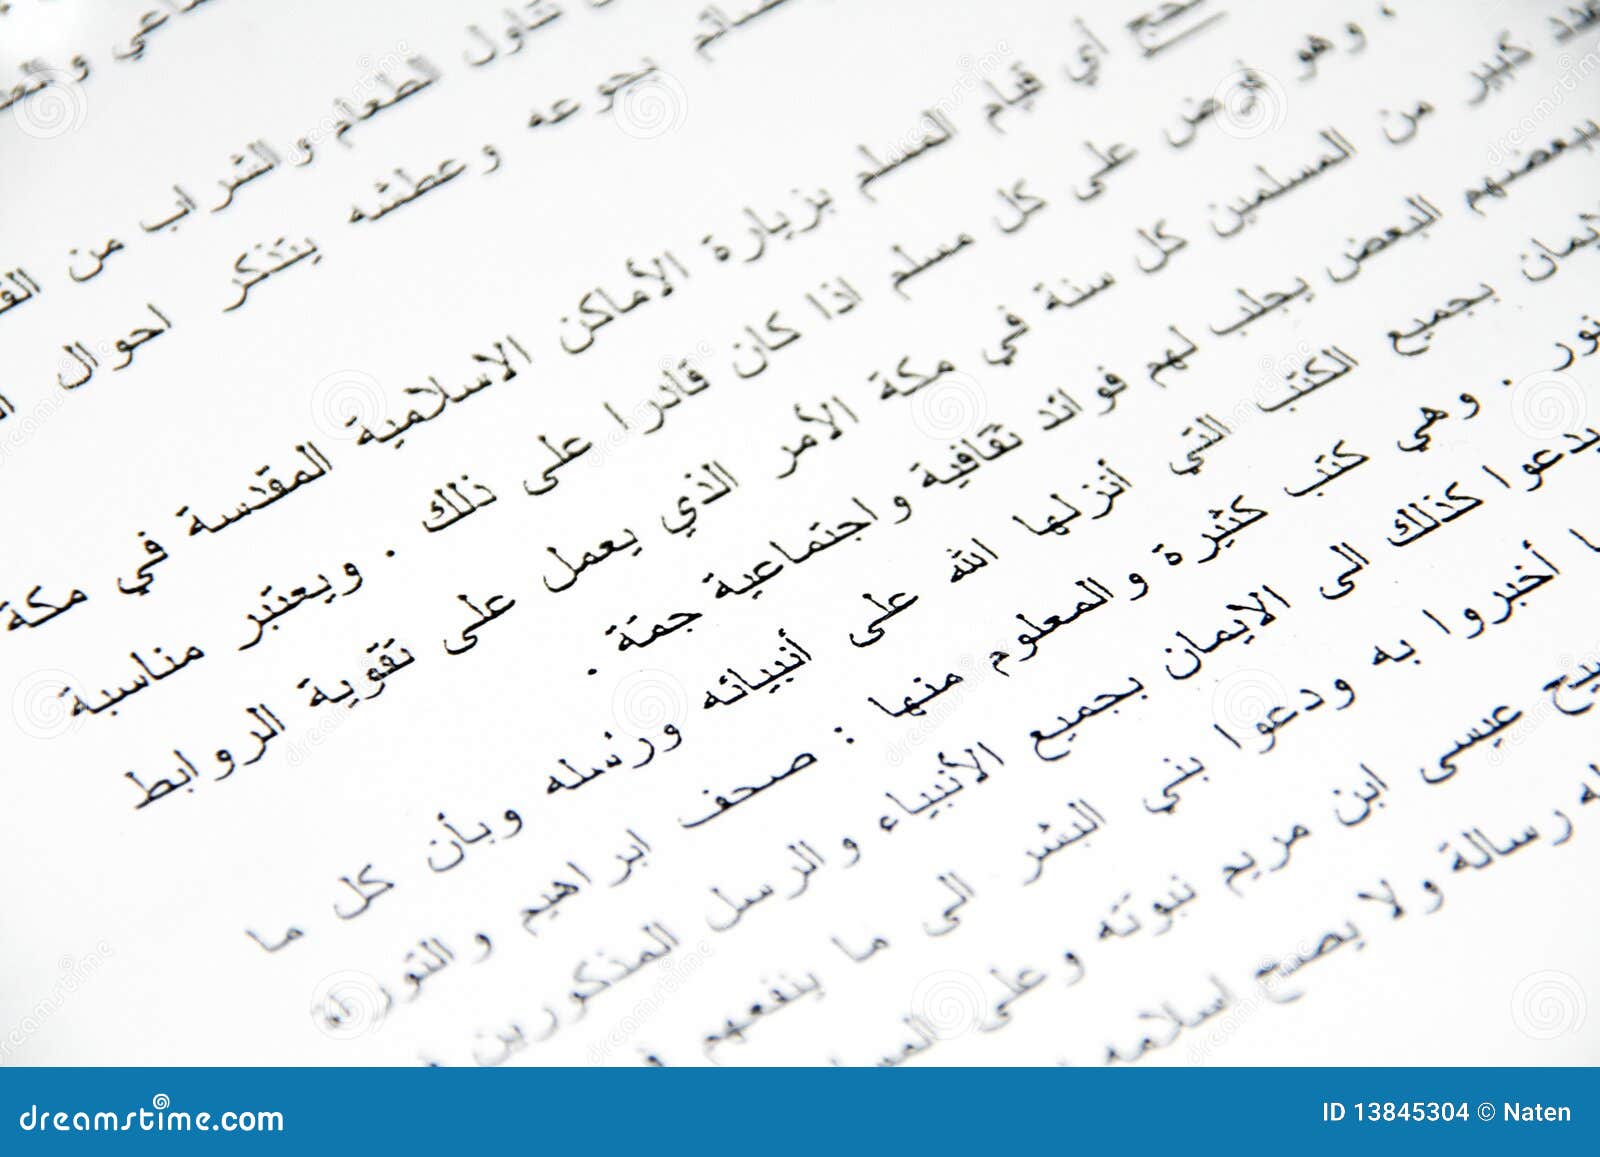 تناول الطعام والشراب من
بجوعه وعطشه يتذكر احوال
الحج أي قيام المسلم بزيارة الأماكن الاسلامية المقدسة في مكة
، وهو فرض على كل مسلم اذا كان قادرا على ذلك . ويعتبر مناسبة
عدد كبير من المسلمين كل سنة في مكة الأمر الذي يعمل على تقوية الروابط
ببعضهم البعض يجلب لهم فوائد ثقافية واجتماعية جمّة .
بجميع الكتب التي أنزلها الله على أنبيائه ورسله وبأن كل ما
نور . وهي كتب كثيرة والمعلوم منها : صحف ابراهيم والتوراة
يدعوا كذلك الى الايمان بجميع الأنبياء والرسل المذكورين
أخبروا به ودعوا بني البشر الى ما ينفعهم
عيسى ابن مريم نبوته وعلى
رسالة ولا يصح اسلامه
dreamstime.com
ID 13845304 © Naten